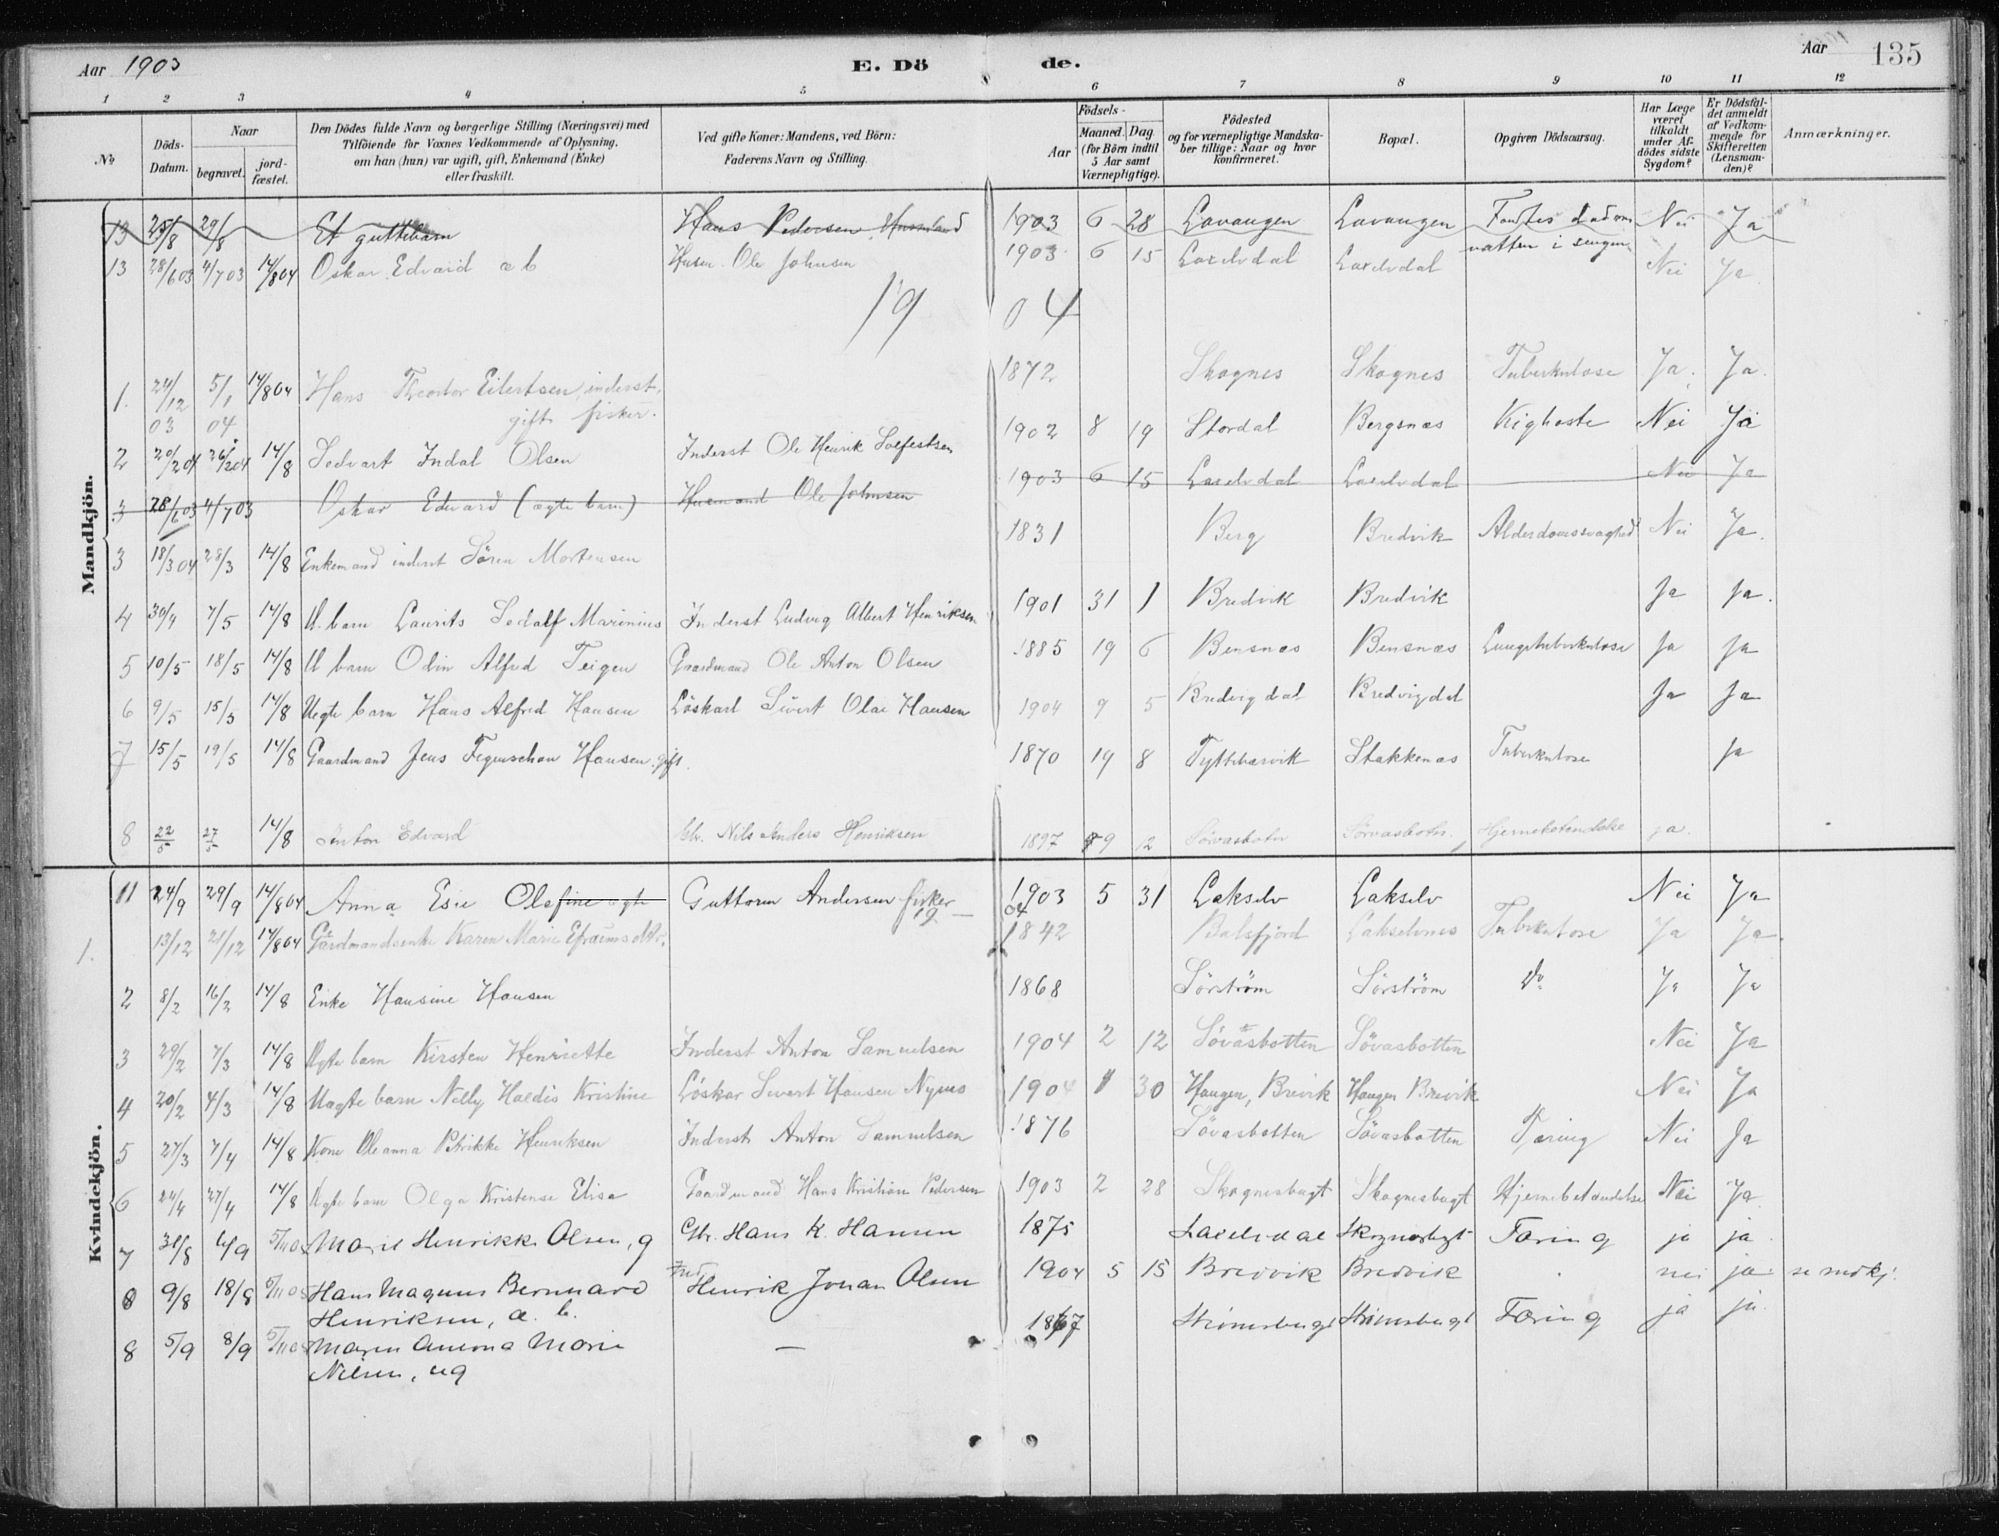 Aar 1903
E. Dö
de.
Aar
135
1 2 3 4 5 6 7 8 9 10 11 12
No
Döds-Datum.
Naar
begravet.
jord-fæstet.
Den Dödes fulde Navn og borgerlige Stilling (Næringsvei) med
Tilföiende for Voxnes Vedkommende af Oplysning.
om han (hun) var ugift, gift, Enkemand (Enke)
eller fraskilt.
Ved gifte Koner: Mandens, ved Börn:
Faderens Navn og Stilling.
Födsels-
Aar
Maaned. Dag
(for Börn indtil
5 Aar samt
Værnepligtige).
Födested
og for værnepligtige Mandska-
ber tillige: Naar og hvor
konfirmeret.
Bopæl.
Opgiven Dödsaarsag.
Har Læge
været
tilkaldt
under Af-
dödes sidste
Sygdom?
Er Dödsfal-
det anmeldt
af Vedkom-
mende for
Skifteretten
(Lensman-
den)?
Anmærkninger.
Mandkjön.
13 25/8 29/8 Et guttebarn Hans Pedersen 1903 6 28 Lavangen Lavangen Fandtes død om natten i sengen Nei Ja
13 28/6 03 4/7 03 14/8 04 Oskar Edvard æ b Husm. Ole Johnsen 1903 6 15 Laxelvdal Laxelvdal Nei Ja
1904
1. 24/12 03 5/1 04 14/8 04 Hans Theodor Eilertsen, inderst, gift fisker. 1872 Skognes Skognes Tuberkulose Ja. Ja.
2 20/2 04 26/2 04 14/8 Sedvart Indal Olsen Inderst Ole Henrik Solfestsen 1902 8 19 Stordal Bergsnæs Kighoste Nei Ja
3 28/6 03 4/7 03 Oskar Edvard (ægte barn) Husmand Ole Johnsen 1903 6 15 Laxelvdal Laxelvdal Nei Ja
3 18/3 04 28/3 14/8 Enkemand inderst Sören Mortensen 1831 Berg Bredvik Alderdomssvaghed Nei Ja.
4 30/4 7/5 14/8 U. barn Laurits Sedolf Marinius Inderst Ludvig Albert Henriksen 1901 31 1 Bredvik Bredvik Ja Ja.
5 10/5 18/5 14/8 U barn Odin Alfred Teigen Gaardmand Ole Anton Olsen 1885 19 6 Bensnæs Bensnæs Lungetuberkulose Ja Ja
6 9/5 15/5 14/8 Uegte barn Hans Alfred Hansen Löskarl Sivert Olai Hansen 1904 9 5 Bredvigdal Bredvigdal Ja Ja
7 15/5 19/5 14/8 Gaardmand Jens Figenschou Hansen. gift. 1870 19 8 Tyttebærvik Stakkenæs Tuberkulose Ja
8 22/5 27/5 14/8 Anton Edvard Gbr. Nils Anders Henriksen 1897 9 2 Sörvasbotn Sörvasbotn Hjernebetændelse ja.
Kvindekjön.
11 24/9 29/9 14/8 04 Anna Esie Olefine ægte Guttorm Andersen fisker 1903 5 31 Lakselv Lakselv Nei Ja
1904
1. 13/12 21/12 14/8 04 Gårdmandsenke Karen Marie Efraimsdtr. 1842 Balsfjord Lakselvnes Tuberkulose Ja Ja.
2 8/2 16/2 14/8 Enke Hansine Hansen 1868 Sörström Sörström Do Ja Ja
3 29/2 7/3 14/8 Ægte barn Kirsten Henriette Inderst Anton Samuelsen 1904 2 12 Sövasbotten Sövasbotten Nei Ja
4 20/2 4/3 14/8 Uægte barn Nelly Haldis Kristine Löskar Sivert Hansen Nymo 1904 1 30 Haugen, Brevik Haugen Brevik Nei Ja
5 27/3 7/4 14/8 Kone Oleanna Petrikke Henriksen Inderst Anton Samuelsen 1876 Sövasbotten Sövasbotten Tæring Nei Ja
6 24/4 27/4 14/8 Ægte barn Olga Kristense Elisa Gaardmand Hans Kristian Pedersen 1903 2 28 Skognesbugt Skognesbugt Hjernebetændelse Nei Ja
7 31/8 6/9 Marie Henrikke Olsen, g Gbr. Hans K. Hansen 1875 Laxelvdal Skognesbugt Tæring ja ja.
8 9/8 18/8 Hans Magnus Bernhard Henriksen, æ. b. Ind. Henrik Johan Olsen 1904 5 15 Bredvik Bredvik nei ja se mdkj.
8 5/9 8/9 Maren Marie Nilsen, ug — 1867 Tæring ja ja.